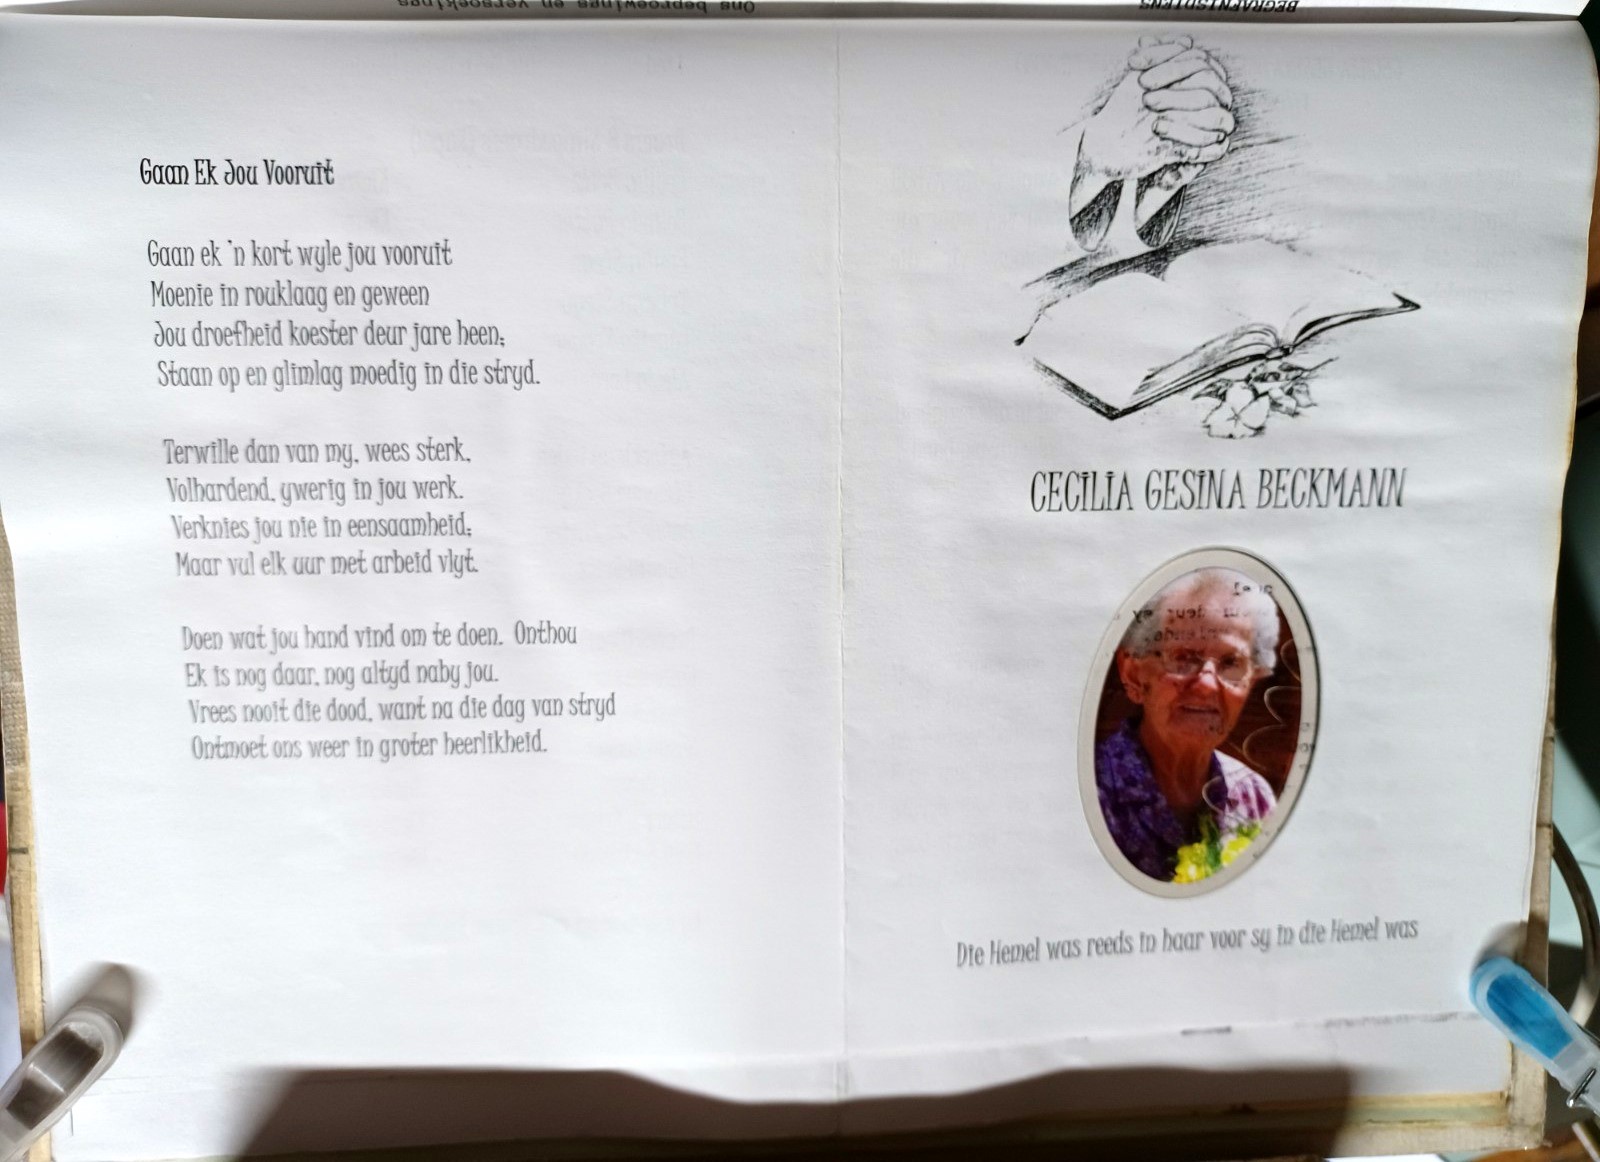 Ons bedroewings en versoekings
BEGRAFNISDIENS
Gaan Ek Jou Vooruit
Gaan ek 'n kort wyle jou vooruit
Moenie in rouklaag en geween
Jou droefheid koester deur jare heen;
Staan op en glimlag moedig in die stryd.
Terwille dan van my, wees sterk,
Volhardend, ywerig in jou werk.
Verknies jou nie in eensaamheid;
Maar vul elk uur met arbeid vlyt.
Doen wat jou hand vind om te doen. Onthou
Ek is nog daar, nog altyd naby jou.
Vrees nooit die dood, want na die dag van stryd
Ontmoet ons weer in groter heerlikheid.
CECILIA GESINA BECKMANN
Die Hemel was reeds in haar voor sy in die Hemel was